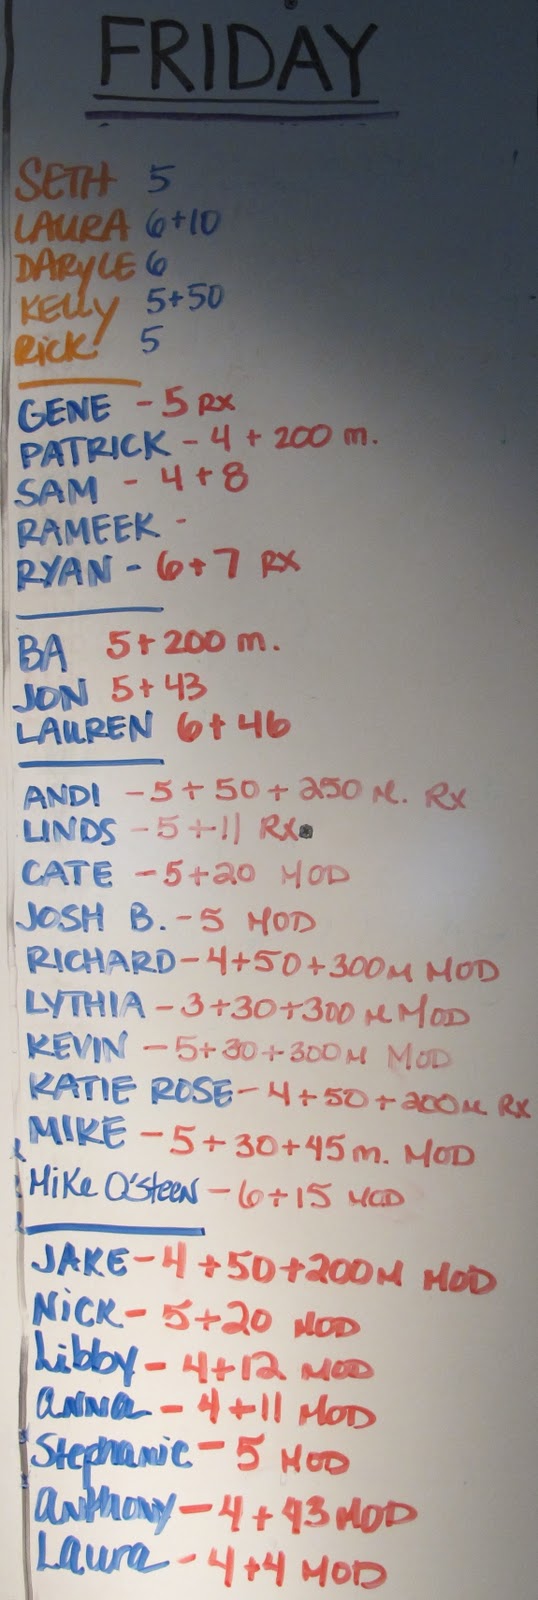 FRIDAY
SETH 5
LAURA 6+10
DARYLE 6
KELLY 5+50
RICK 5
GENE - 5 RX
PATRICK - 4 + 200 m.
SAM - 4+8
RAMEEK -
RYAN - 6+7 RX
BA 5+200 m.
JON 5+43
LAUREN 6+46
ANDI - 5 + 50 + 250 M. RX
LINDS - 5+11 RX
CATE - 5+20 MOD
JOSH B. - 5 MOD
RICHARD - 4+50+300M MOD
LYTHIA - 3+30+300 M MOD
KEVIN - 5+30+300M MOD
KATIE ROSE - 4+50+200M RX
MIKE - 5+30+45m. MOD
MiKe O'Steen - 6+15 MOD
JAKE - 4+50+200M MOD
NICK - 5+20 MOD
Libby - 4+12 MOD
anna - 4+11 MOD
Stephanie - 5 MOD
anthony - 4+43 MOD
Laura - 4+4 MOD